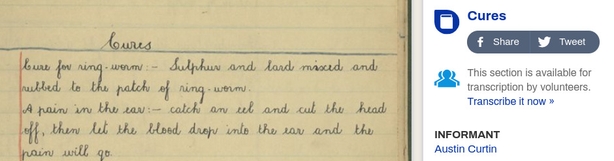 Cures
Cure for ring-worm:- Sulphur and lard mixed and
rubbed to the patch of ring-worm.
A pain in the ear:- catch an eel and cut the head
off, then let the blood drop into the ear and the
pain will go.
Cures
Share
Tweet
This section is available for
transcription by volunteers.
Transcribe it now »
INFORMANT
Austin Curtin